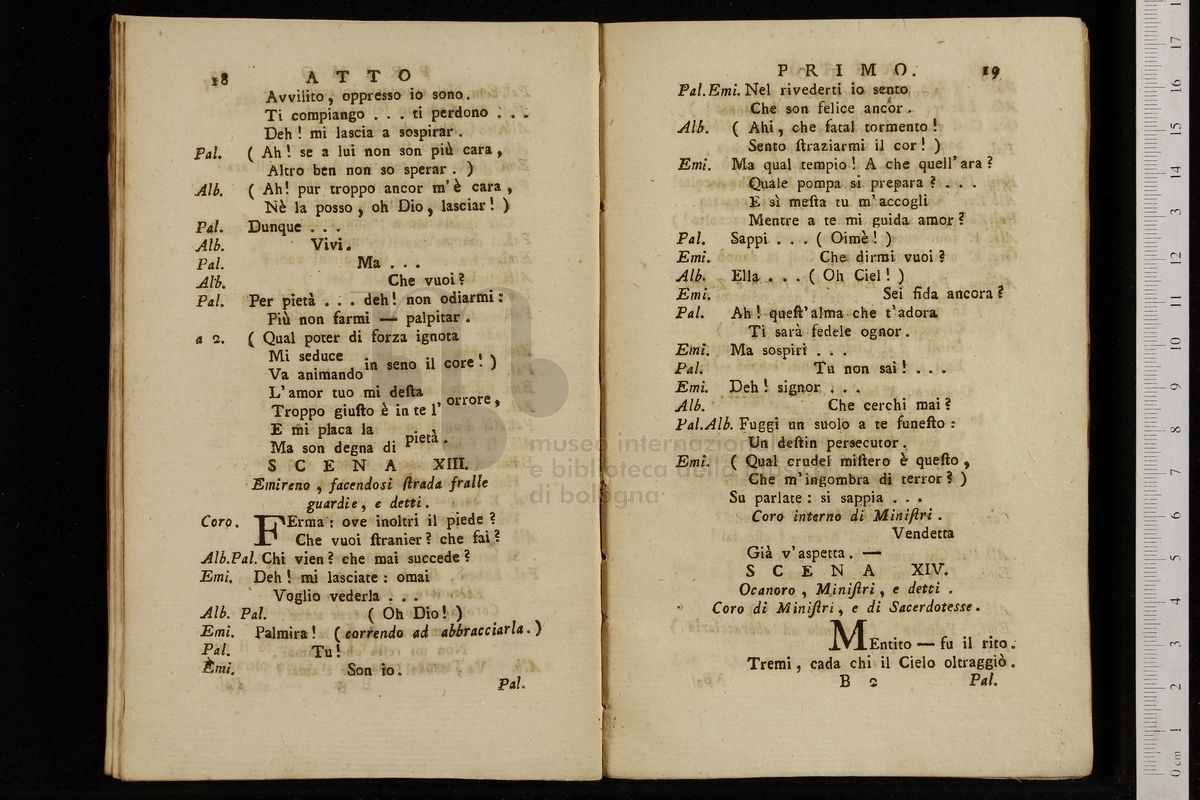 18 ATTO
Avvilito, oppresso io sono.
Ti compiango . . . ti perdono . . .
Deh! mi lascia a sospirar.
Pal. ( Ah! se a lui non son più cara,
Altro ben non so sperar. )
Alb. ( Ah! pur troppo ancor m'è cara,
Nè la posso, oh Dio, lasciar! )
Pal. Dunque . . .
Alb. Vivi.
Pal. Ma . . .
Alb. Che vuoi?
Pal. Per pietà . . . deh! non odiarmi:
Più non farmi — palpitar.
a 2. ( Qual poter di forza ignota
Mi seduce
Va animando in seno il core! )
L'amor tuo mi deſta
Troppo giuſto è in te l' orrore,
E mi placa la
Ma son degna di pietà.
SCENA XIII.
Emireno, facendosi ſtrada fralle
guardie, e detti.
Coro. FErma: ove inoltri il piede?
Che vuoi ſtranier? che fai?
Alb.Pal. Chi vien? che mai succede?
Emi. Deh! mi lasciate: omai
Voglio vederla . . .
Alb. Pal. ( Oh Dio! )
Emi. Palmira! (correndo ad abbracciarla.)
Pal. Tu!
Emi. Son io.
Pal.
PRIMO. 19
Pal.Emi. Nel rivederti io sento
Che son felice ancor.
Alb. ( Ahi, che fatal tormento!
Sento ſtraziarmi il cor! )
Emi. Ma qual tempio! A che quell'ara?
Quale pompa si prepara? . . .
E sì meſta tu m'accogli
Mentre a te mi guida amor?
Pal. Sappi . . . ( Oimè! )
Emi. Che dirmi vuoi?
Alb. Ella . . . ( Oh Ciel! )
Emi. Sei fida ancora?
Pal. Ah! queſt'alma che t'adora
Ti sarà fedele ognor.
Emi. Ma sospiri . . .
Pal. Tu non sai! . . .
Emi. Deh! signor . . .
Alb. Che cerchi mai?
Pal.Alb. Fuggi un suolo a te funeſto:
Un deſtin persecutor.
Emi. ( Qual crudel miſtero è queſto,
Che m'ingombra di terror? )
Su parlate: si sappia . . .
Coro interno di Miniſtri.
Vendetta
Già v'aspetta. —
SCENA XIV.
Ocanoro, Miniſtri, e detti.
Coro di Miniſtri, e di Sacerdotesse.
MEntito — fu il rito.
Tremi, cada chi il Cielo oltraggiò.
B 2 Pal.
museo internazion
e biblioteca della musica
di bologna
0 cm 1 2 3 4 5 6 7 8 9 10 11 12 13 14 15 16 17